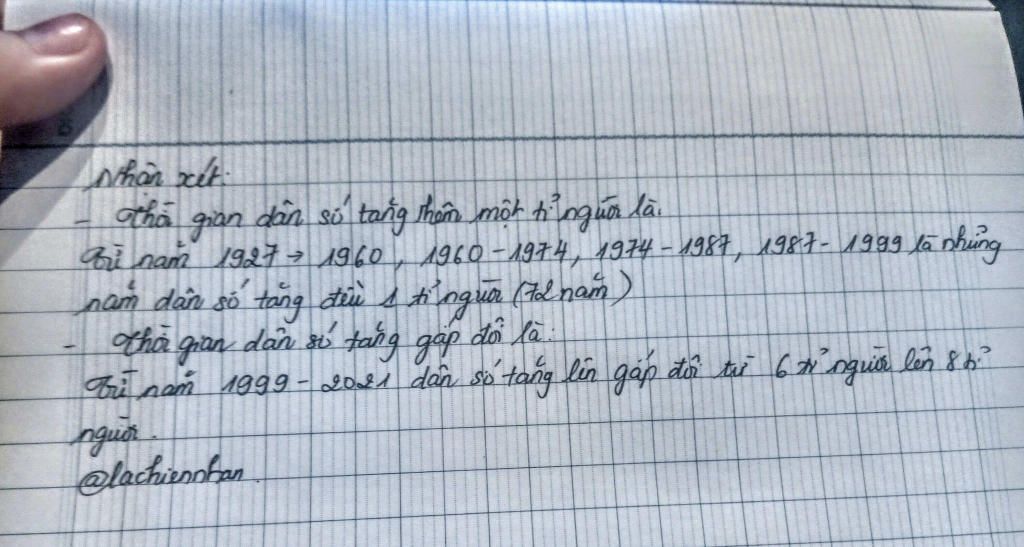 Nhận xét:
- Thời gian dân số tăng thêm một tỉ người là.
Từ năm 1927 → 1960, 1960 - 1974, 1974 - 1987, 1987 - 1999 là những
năm dân số tăng đều 1 tỉ người (72 năm)
- Thời gian dân số tăng gấp đôi là:
Từ năm 1999 - 2021 dân số tăng lên gấp đôi từ 6 tỉ người lên 8 tỉ
người.
@lachiennhan.